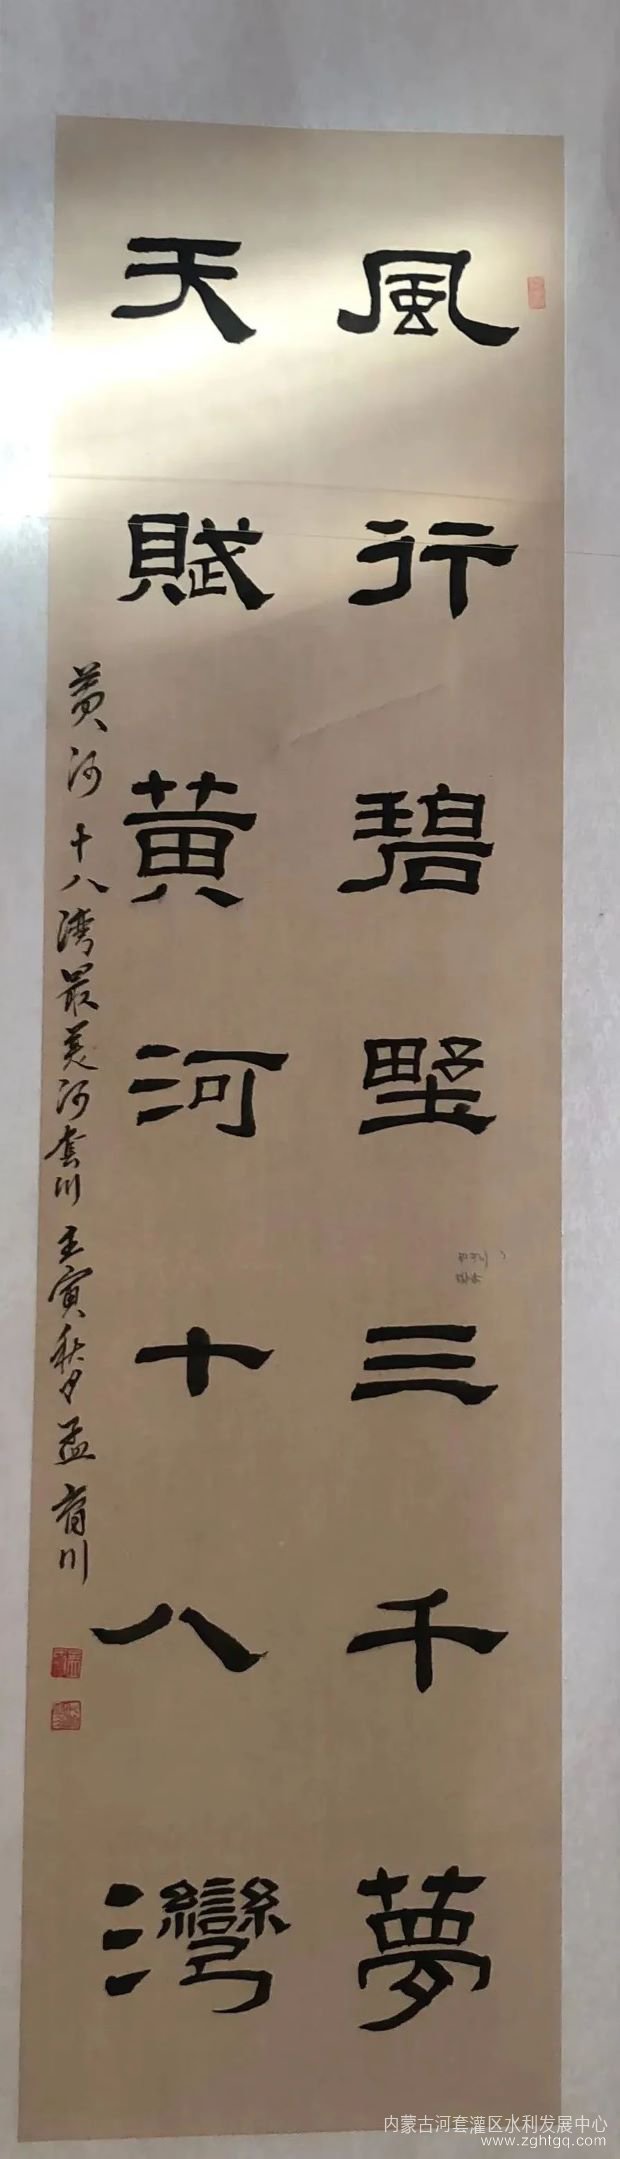 風行碧墅三千夢
天賦黄河十八灣
黄河十八湾最美河套川 壬寅秋月 孟有川
内蒙古河套灌区水利发展中心
www.zghtgq.com